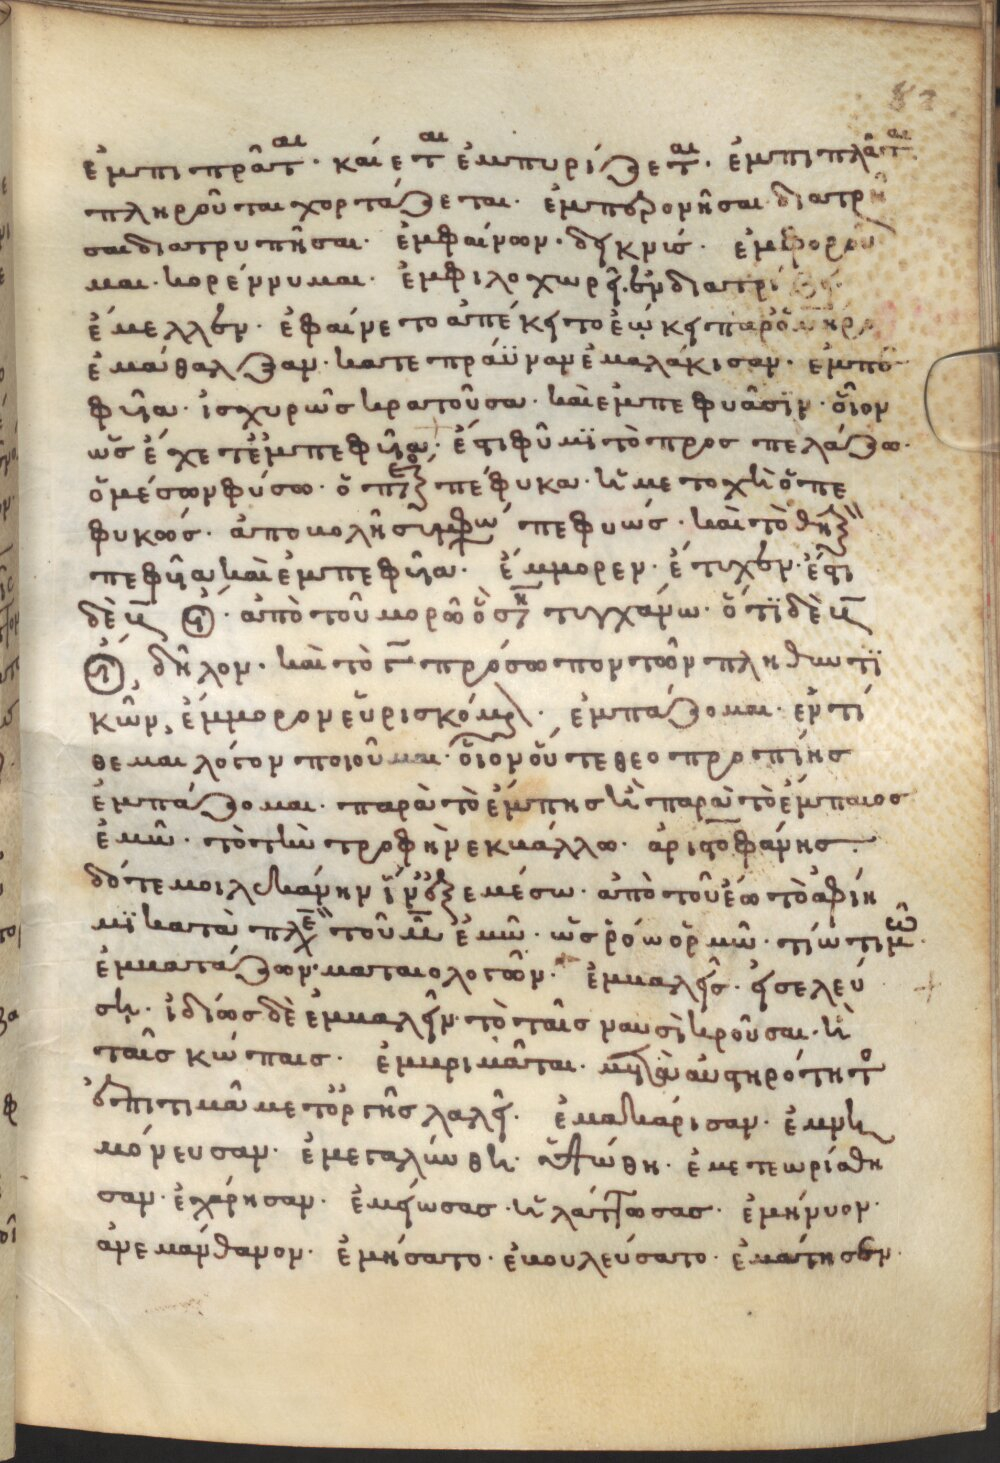 ἐμπιπρᾶται · καίεται ἐμπυρίζεται · ἐμπιπλᾶται
πληροῦται χορτάζεται · ἐμπερονῆσαι διατρῆ
σαι διατρυπῆσαι · ἐμφαίνων · δεικνύς · ἐμφοροῦ
μαι · κορέννυμαι · ἐμφιλοχωρεῖ · ἐνδιατρίβει
ἔμελλεν · ἐφαίνετο ἀπέκειτο ἐῴκει
ἐμάλθαξαν · κατεπράϋναν ἐμαλάκισαν · ἐμπε
φυῖα · ἰσχυρῶς κρατοῦσα · καὶ ἐμπεφυᾶσιν · οἷον
ὣς ἔχετ' ἐμπεφυῖα · ἔστι φῦμι τὸ προσπελάζω ·
ὁ μέσων φύσω · ὁ πέφυκα · ἡ μετοχὴ ὁ πε
φυκώς · ἀποβολῇ πεφυώς · καὶ τὸ
πεφυῖα καὶ ἐμπεφυῖα · ἔμμορεν · ἔτυχεν · ἔστι
δὲ · ἀπὸ τοῦ μορῶ τυγχάνω · ὅτι δὲ
δῆλον · καὶ τὸ πρόσωπον τῶν πληθυντι
κῶν, ἔμμορον εὑρισκόμεν · ἐμπάζομαι · ἐντί
θεμαι λόγον ποιοῦμαι · οἷον οὔτε θεοπροπίης
ἐμπάζομαι · παρὰ τὸ ἔμπης ἢ παρὰ τὸ ἔμπαιος
ἐμῶ · τὸ τὴν τροφὴν ἐκβάλλω · ἀριστοφάνης ·
δότε μοι λεκάνην ἵν' ἐξεμέσω · ἀπὸ τοῦ ἕω τὸ ἀφίη
μι κατὰ τοῦ μ ἐμῶ · ὡς ὁρμῶ · τίω τιμῶ ·
ἐμματάζων · ματαιολογῶν · ἐμβαλεῖς · εἰσελεύ
ση · ἰδίως δὲ ἐμβαλεῖν · τὸ ταῖς ναυσὶ κροῦσαι · ἢ
ταῖς κώπαις · ἐμβριμᾶται · μετὰ αὐστηρότητος
ἐπιτιμᾶ μετ' ὀργῆς λαλεῖ · ἐμακάρισαν · ἐμνη
μόνευσαν · ἐμεγαλύνθη · ὑψώθη · ἐμετεωρίσθη
σαν · ἐχάρησαν · ἐμείωσας · ἠλάττωσας · ἐμήνυον ·
ἀνεμάνθανον · ἐμήσατο · ἐβουλεύσατο · ἐμάτησεν ·